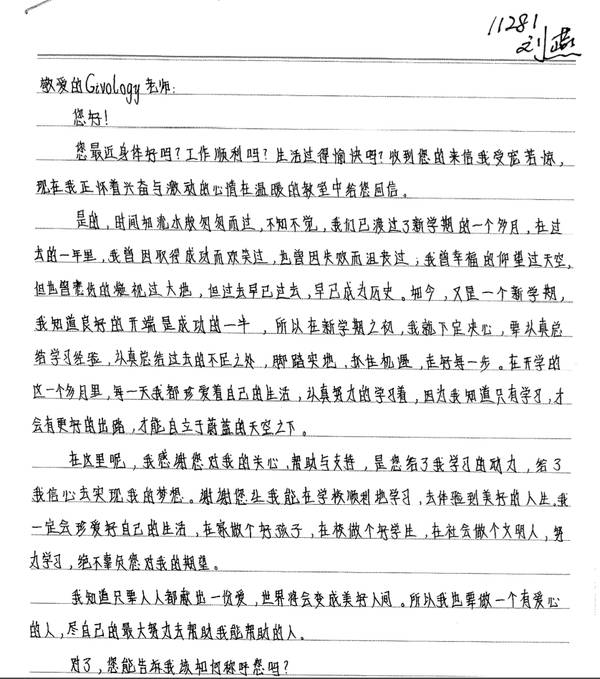 11281
刘燕
敬爱的Givology老师:
您好!
您最近身体好吗?工作顺利吗?生活过得愉快吗?收到您的来信我受宠若惊,
现在我正怀着兴奋与激动的心情在温暖的教室中给您回信。
是的,时间如流水般匆匆而过,不知不觉,我们已渡过了新学期的一个多月,在过
去的一年里,我曾因取得成功而欢笑过,也曾因失败而沮丧过;我曾幸福的仰望过天空,
但也曾悲伤的俯视过大地,但过去早已过去,早已成为历史。如今,又是一个新学期,
我知道良好的开端是成功的一半,所以在新学期之初,我就下定决心,要认真总
结学习经验,认真总结过去的不足之处,脚踏实地,抓住机遇,走好每一步。在开学的
这一个多月里,每一天我都珍爱着自己的生活,认真努力的学习着,因为我知道只有学习,才
会有更好的出路,才能自立于蔚蓝的天空之下。
在这里呢,我感谢您对我的关心、帮助与支持,是您给了我学习的动力,给了
我信心去实现我的梦想。谢谢您让我能在学校顺利地学习,去体验到美好的人生。我
一定会珍爱好自己的生活,在家做个好孩子,在校做个好学生,在社会做个文明人,努
力学习,绝不辜负您对我的期望。
我知道只要人人都献出一份爱,世界将会变成美好人间。所以我也要做一个有爱心
的人,尽自己的最大努力去帮助我能帮助的人。
对了,您能告诉我该如何称呼您吗?